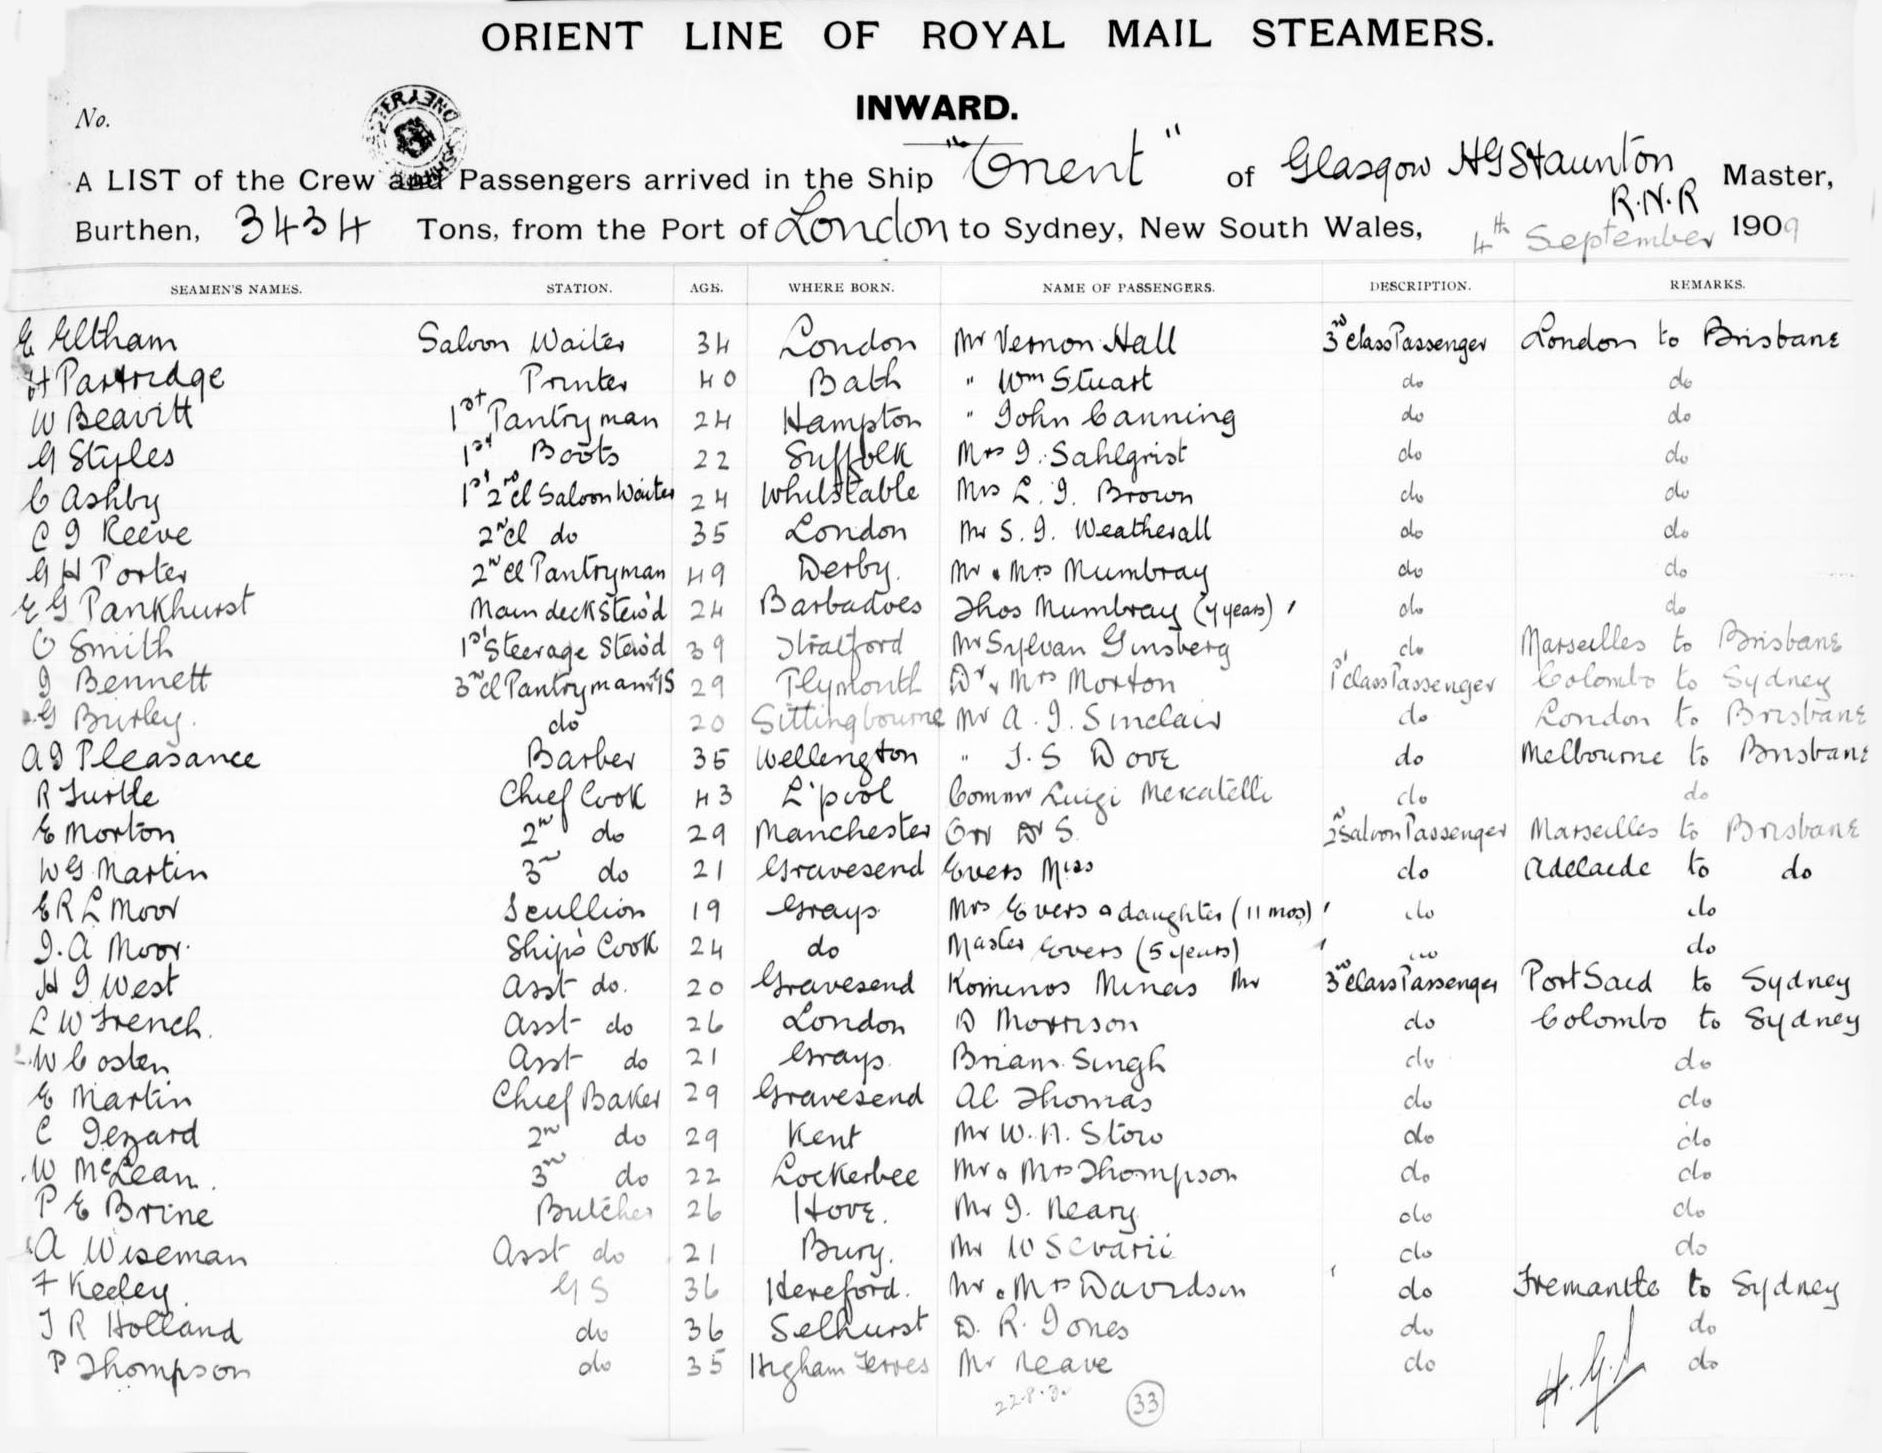 ORIENT LINE OF ROYAL MAIL STEAMERS.
INWARD.
No.
A LIST of the Crew and Passengers arrived in the Ship "Orient" of Glasgow H G Staunton Master,
R.N.R
Burthen, 3434 Tons, from the Port of London to Sydney, New South Wales, 4th September 1909
SEAMEN'S NAMES. STATION. AGE. WHERE BORN. NAME OF PASSENGERS. DESCRIPTION. REMARKS.
E Eltham Saloon Waiter 34 London Mr Vernon Hall 3rd class Passenger London to Brisbane
H Partridge Printer 40 Bath " Wm Stuart do do
W Beavitt 1st Pantryman 24 Hampton " John Canning do do
G Styles 1st Boots 22 Suffolk Mrs J. Sahlgrist do do
C Ashby 1st 2nd cl Saloon Waiter 24 Whilstable Mrs L. J. Brown do do
C J Reeve 2nd cl do 35 London Mr S. J. Weatherall do do
G H Porter 2nd cl Pantryman 49 Derby. Mr & Mrs Mumbray do do
E G Pankhurst Main deck Stew'd 24 Barbadoes Thos Mumbray (7 years) do do
O Smith 1st Steerage Stew'd 39 Stratford Mr Sylvan Ginsberg do Marseilles to Brisbane
J Bennett 3rd cl Pantryman GS 29 Plymouth Dr & Mrs Morton 1st class Passenger Colombo to Sydney
G Burley. do 20 Sittingbourne Mr A. J. Sinclair do London to Brisbane
A J Pleasance Barber 35 Wellington " J. S Dove do Melbourne to Brisbane
R Turtle Chief Cook 43 L'pool Commr Luigi Mercatelli do do
E Morton 2nd do 29 Manchester Orr Dr S. 2nd Saloon Passenger Marseilles to Brisbane
W G Martin 3rd do 21 Gravesend Evers Miss do Adelaide to do
E R L Moor Scullion 19 Grays Mrs Evers & daughter (11 mos) do do
J. A Moor. Ship's Cook 24 do Master Evers (5 years) do do
H J West Asst do. 20 Gravesend Kominos Minas Mr 3rd class Passenger Port Said to Sydney
L W French. Asst do 26 London D Morrison do Colombo to Sydney
W Costen Asst do 21 Grays. Briam Singh do do
E Martin Chief Baker 29 Gravesend A C Thomas do do
C Jezzard 2nd do 29 Kent Mr W. A. Stow do do
W McLean. 3rd do 22 Lockerbee Mr & Mrs Thompson do do
P E Brine Butcher 26 Hove. Mr J. Neary do do
A Wiseman Asst do 21 Bury. Mr W do do
F Keeley. G S 36 Hereford. Mr & Mrs Davidson do Fremantle to Sydney
J R Holland do 36 Selhurst D. R. Jones do do
P Thompson do 35 Higham Ferres Mr Neave do do
33
H. G. S